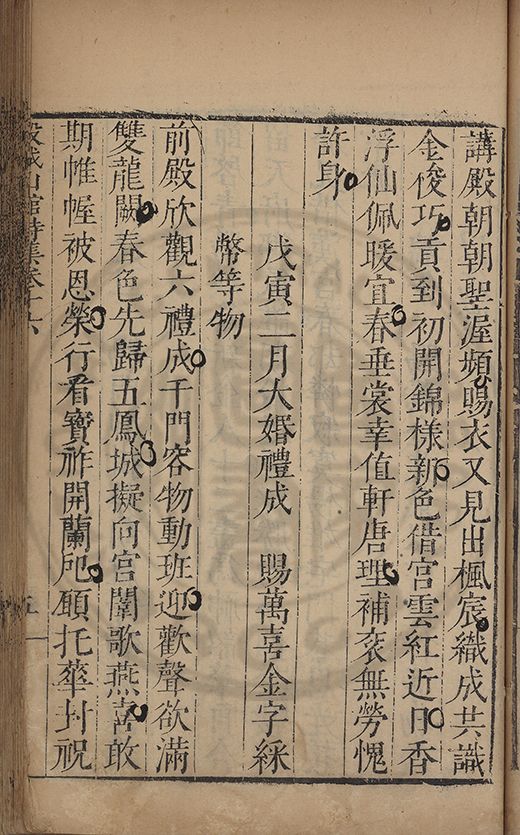 講殿朝朝聖渥頻賜衣又見出楓宸織成共識
金俊巧貢到初開錦樣新色借宮雲紅近日香
浮仙佩暖宜春垂裳幸值軒唐理補衮無勞愧
許身
戊寅二月大婚禮成 賜萬喜金字綵
幣等物
前殿欣觀六禮成千門容物動班迎歡聲欲滿
雙龍闕春色先歸五鳳城擬向宮闈歌燕喜敢
期帷幄被恩榮行看寶祚開蘭戺願托華封祝
穀城山館詩集卷十六
五